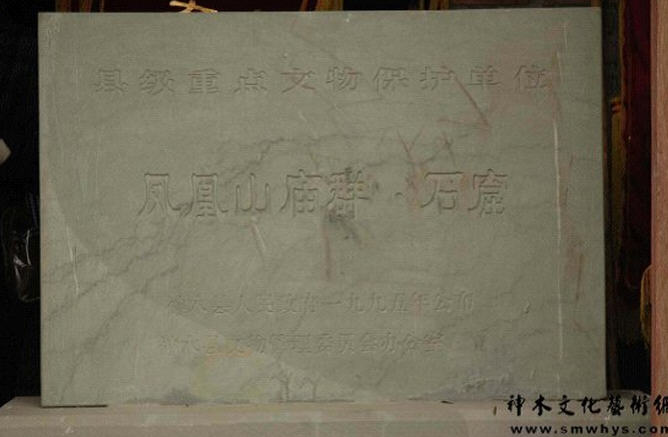 县级重点文物保护单位
凤凰山庙群·石窟
神木县人民政府一九九五年公布
神木县文物管理委员会办公室
神木文化藝術
www.smwhys.com